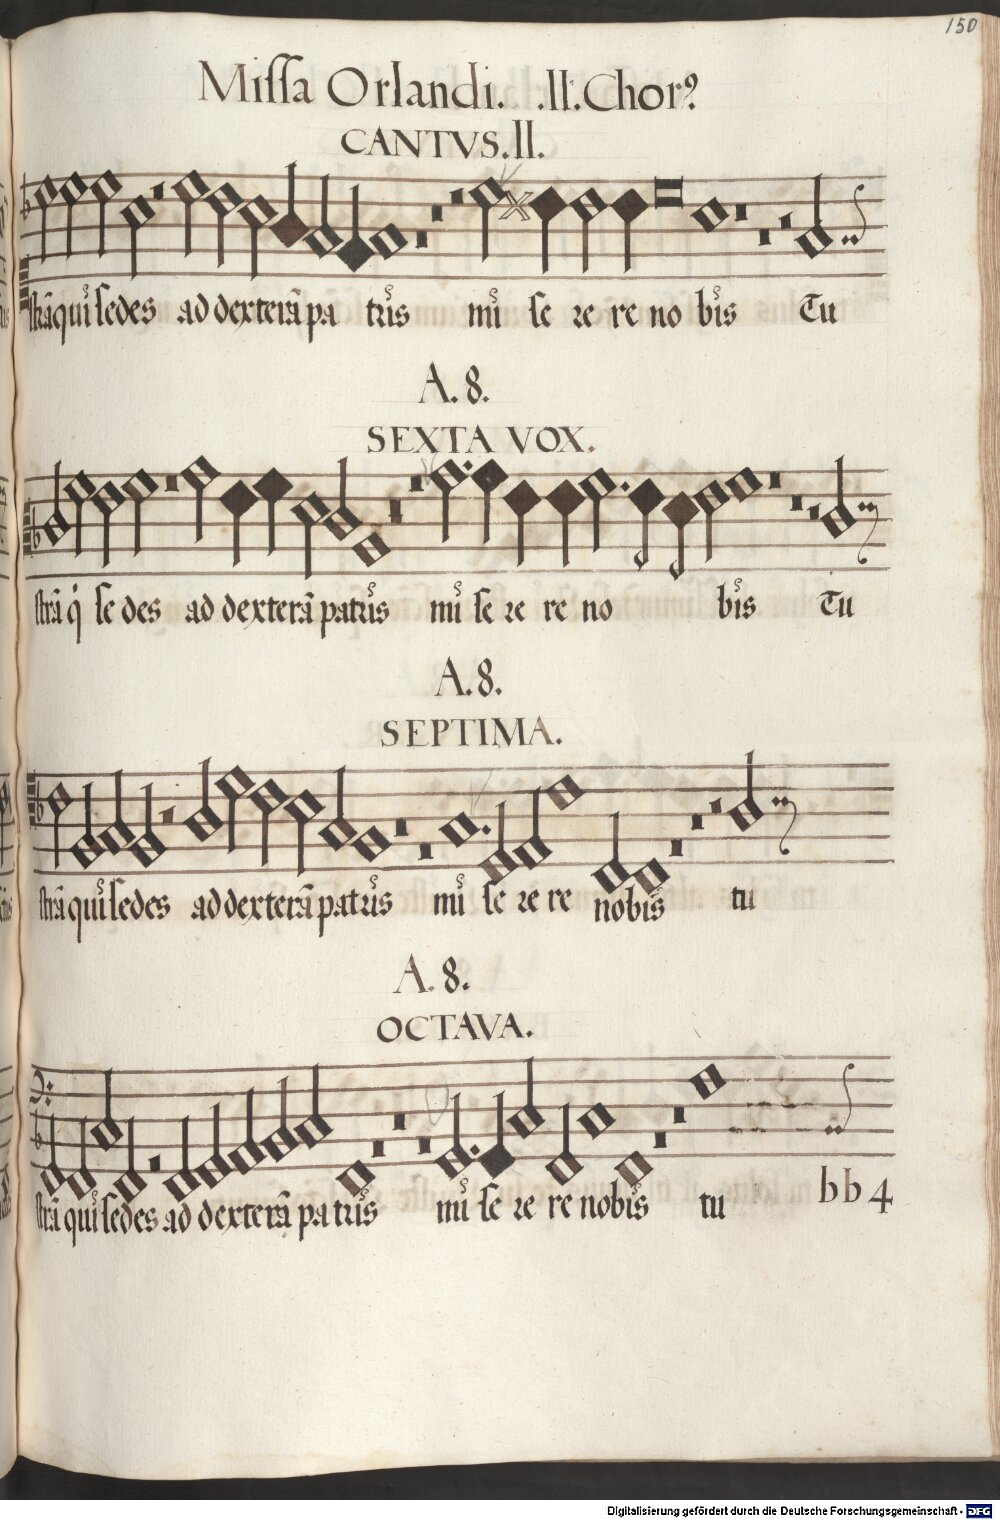 150
Missa Orlandi. .II. Chorꝰ
CANTVS. II.
strā qui sedes ad dexterā pa tris mi se re re no bis Tu
A. 8.
SEXTA VOX.
strā q̇ se des ad dexterā patris mi se re re no bis Tu
A. 8.
SEPTIMA.
strā qui sedes ad dexterā patris mi se re re nobis tu
A. 8.
OCTAVA.
strā qui sedes ad dexterā pa tris mi se re re nobis tu
bb 4
Digitalisierung gefördert durch die Deutsche Forschungsgemeinschaft - DFG